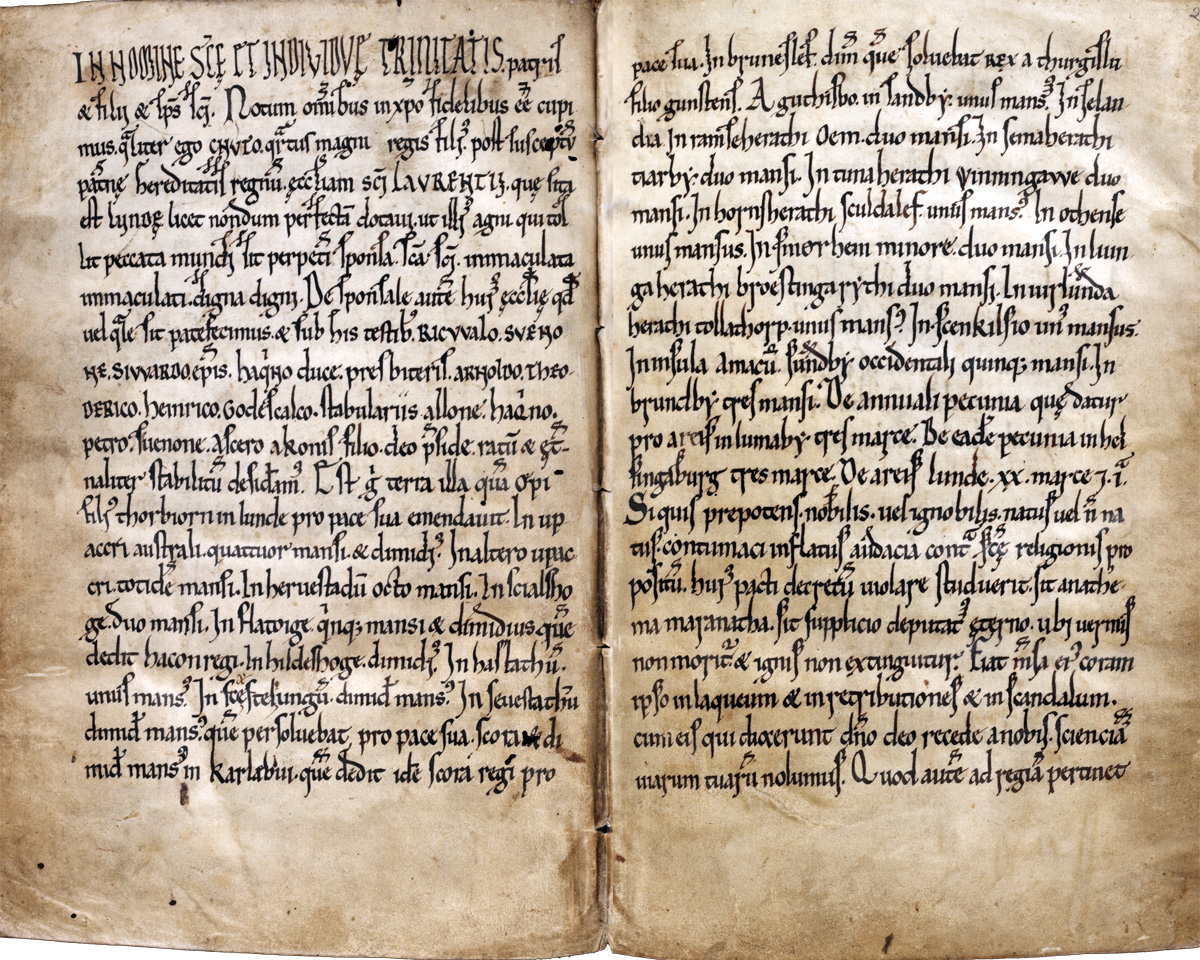 IN NOMINE SCĘ ET INDIVIDVĘ TRINITATIS. patris
& filii & sp̄s sc̄i. Notum om̄ibus in xp̄o fidelibus ēē cupi
mus. q̄liter ego CNVTO. q̄rtus magni regis filiꝰ. post susceptū
pat̄nę hereditatis regnū. ęccl̄iam sc̄i LAVRENTII. quę sita
est lundę licet nondum perfectā dotaui. ut illiꝰ agni qui tol
lit peccata mundi sit perpeti sponsa. sc̄a. sc̄i. immaculata
immaculati. digna digni. De sponsale autē huiꝰ ęccl̄ię qd̄
uel q̄le sit patefecimus. & sub his testibꝰ. RICWALO. SVENO
NE. SIWARDO. ep̄is. haq̄no duce. presbiteris. ARNOLDO. THEO-
DERICO. heinrico. Godescalco. stabulariis allone. haq̄no.
petro. suenone. Ascero akonis filio. deo p̄side. ratū & ęt̄-
naliter stabilitū desidam̄. Est ḡ terra illa quā opi
filiꝰ thorbiorn in lunde pro pace sua emendauit. In up
accri australi. quattuor mansi. & dimidiꝰ. In altero upac
cri. totidē mansi. In heruestadū octo mansi. In scialsho
ge. duo mansi. In flatoige. q̄inqꝫ mansi & dimidius. quē
dedit hacon regi. In hildeshoge. dimidiꝰ. In hastathū.
unus mansꝰ. In scęftelungū. dimid̄ mansꝰ. In seuestathū
dimid̄ mansꝰ. quē persoluebat pro pace sua. scora & di
mid̄ mansꝰ in karlabui. quē dedit idē scora regi pro
pace sua. In brunęslef. dim̄ quē soluebat REX a thurgislu
filio gunstens. A guthisbo. in sandby. unus mansꝰ. In selan
dia. In ramseherathi Oem. duo mansi. In semaherathi
tiarby. duo mansi. In tunaherathi vinningawe duo
mansi. In hornsherathi sculdalef. unus mansꝰ. In othense
unus mansus. In smørhem minore. duo mansi. In lun
gaherathi brvestingarythi duo mansi. In uirlunda
herathi tollathorp. unus mansꝰ. In scenkilsio unꝰ mansus.
In insula Amacū. sundby. occidentali quinqꝫ mansi. In
brundby. tres mansi. De annuali pecunia quę datur
pro areis in lumaby. tres marcę. De eadē pecunia in hel
singaburg tres marcę. De areis lundę. xx. marcę ⁊. i.
Si quis prepotens. nobilis. uel ignobilis. natus uel n̄ na
tus. contumaci inflatus audacia cont̄ scę̄ religionis pro
positū. huiꝰ pacti decretū uiolare studuerit. sit anathe-
ma maranatha. sit supplicio deputatꝰ ęterno. ubi uermis
non morit̄ & ignis non extinguitur. Fiat m̄sa eiꝰ coram
ipso in laqueum & in retributiones & in scandalum.
cum eis qui dixerunt dn̄o deo recede a nobis. scienciā
uiarum tuarū nolumus. Quod autē ad regiā pertinet